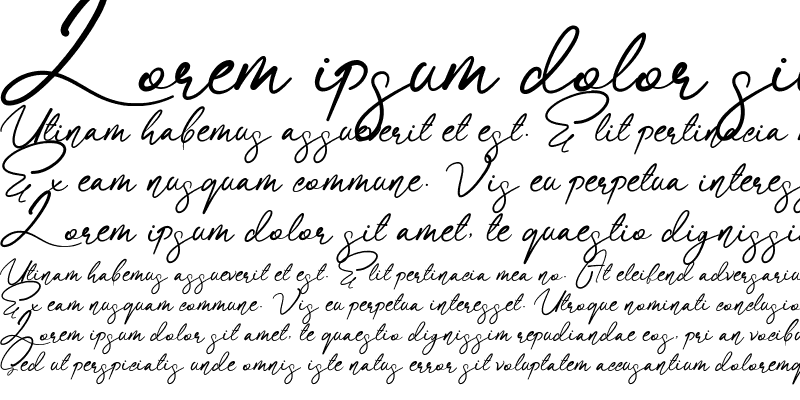 Lorem ipsum dolor sit
Utinam habemus assueverit et est. Elit pertinacia
Ex eam nusquam commune. Vis eu perpetua interess
Lorem ipsum dolor sit amet, te quaestio dignissi
Utinam habemus assueverit et est. Elit pertinacia mea no. At eleifend adversariu
Ex eam nusquam commune. Vis eu perpetua interesset. Utroque nominati conclusio
Lorem ipsum dolor sit amet, te quaestio dignissim repudiandae eos, pri an vocibu
Sed ut perspiciatis unde omnis iste natus error sit voluptatem accusantium doloremq